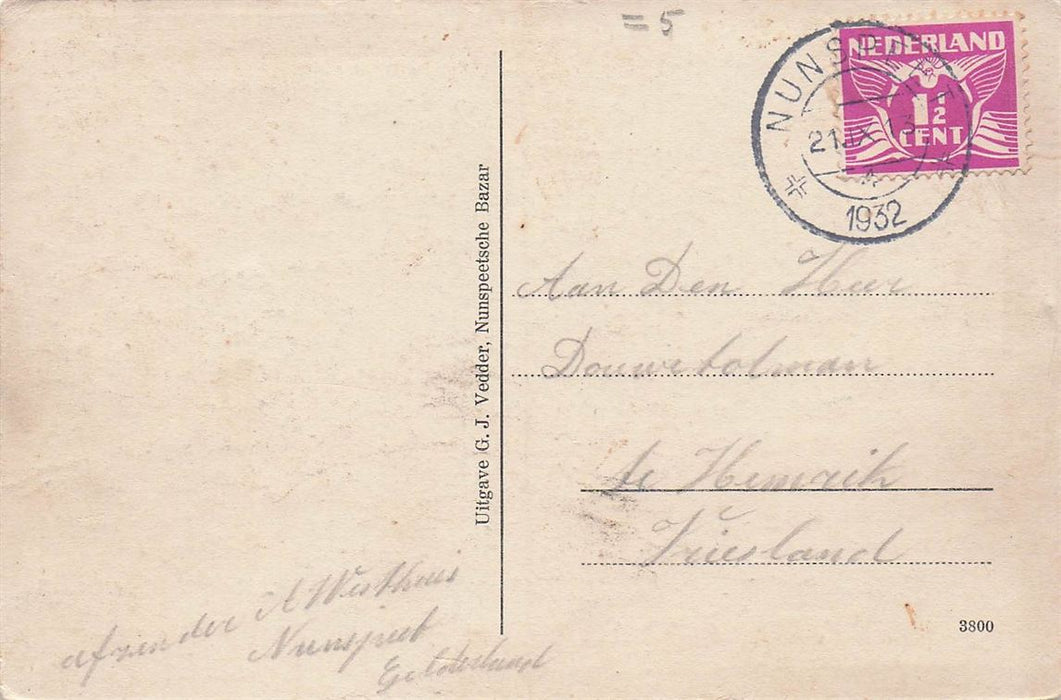 = 5
NEDERLAND
1 1/2
CENT
NUNSPEET
21.IX 13
4
1932
Aan Den Heer
Douwe tolman
te Hemrik
Friesland
Uitgave G. J. Vedder, Nunspeetsche Bazar
afzender A Westhuis
Nunspeet
Gelderland
3800